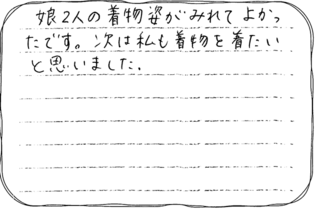 娘2人の着物姿がみれてよかっ
たです。次は私も着物を着たい
と思いました.